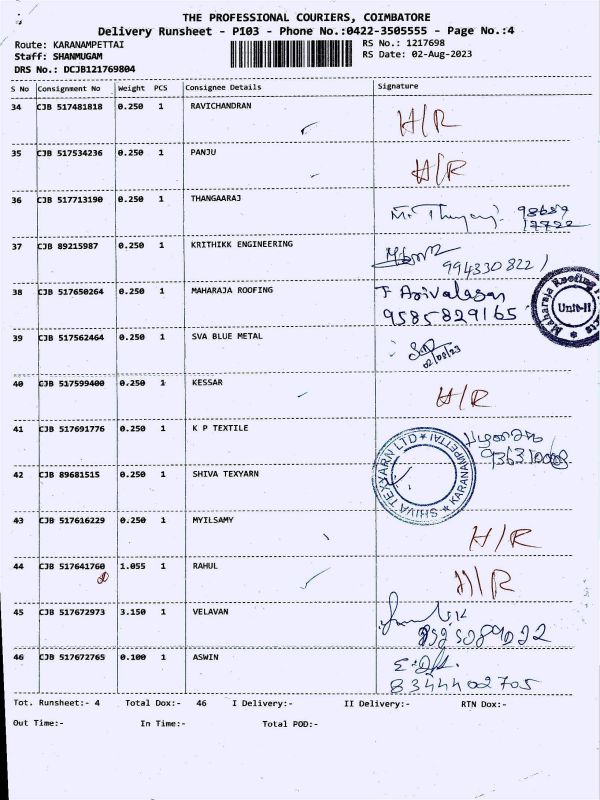 THE PROFESSIONAL COURIERS, COIMBATORE
Delivery Runsheet - P103 - Phone No.:0422-3505555 - Page No.:4
Route: KARANAMPETTAI RS No.: 1217698
Staff: SHANMUGAM RS Date: 02-Aug-2023
DRS No.: DCJB121769804
S No Consignment No Weight PCS Consignee Details Signature
34 CJB 517481818 0.250 1 RAVICHANDRAN H/R
35 CJB 517534236 0.250 1 PANJU H/R
36 CJB 517713190 0.250 1 THANGAARAJ
37 CJB 89215987 0.250 1 KRITHIKK ENGINEERING
9943308221
38 CJB 517650264 0.250 1 MAHARAJA ROOFING Arivalagan
9585829165
Maharaja Roofing
Unit-II
39 CJB 517562464 0.250 1 SVA BLUE METAL
02/08/23
40 CJB 517599400 0.250 1 KESSAR H/R
41 CJB 517691776 0.250 1 K P TEXTILE
42 CJB 89681515 0.250 1 SHIVA TEXYARN
SHIVA TEXYARN LTD
KARANAMPETTAI
43 CJB 517616229 0.250 1 MYILSAMY H/R
44 CJB 517641760 1.055 1 RAHUL H/R
45 CJB 517672973 3.150 1 VELAVAN
46 CJB 517672765 0.100 1 ASWIN
8344402705
Tot. Runsheet:- 4 Total Dox:- 46 I Delivery:- II Delivery:- RTN Dox:-
Out Time:- In Time:- Total POD:-